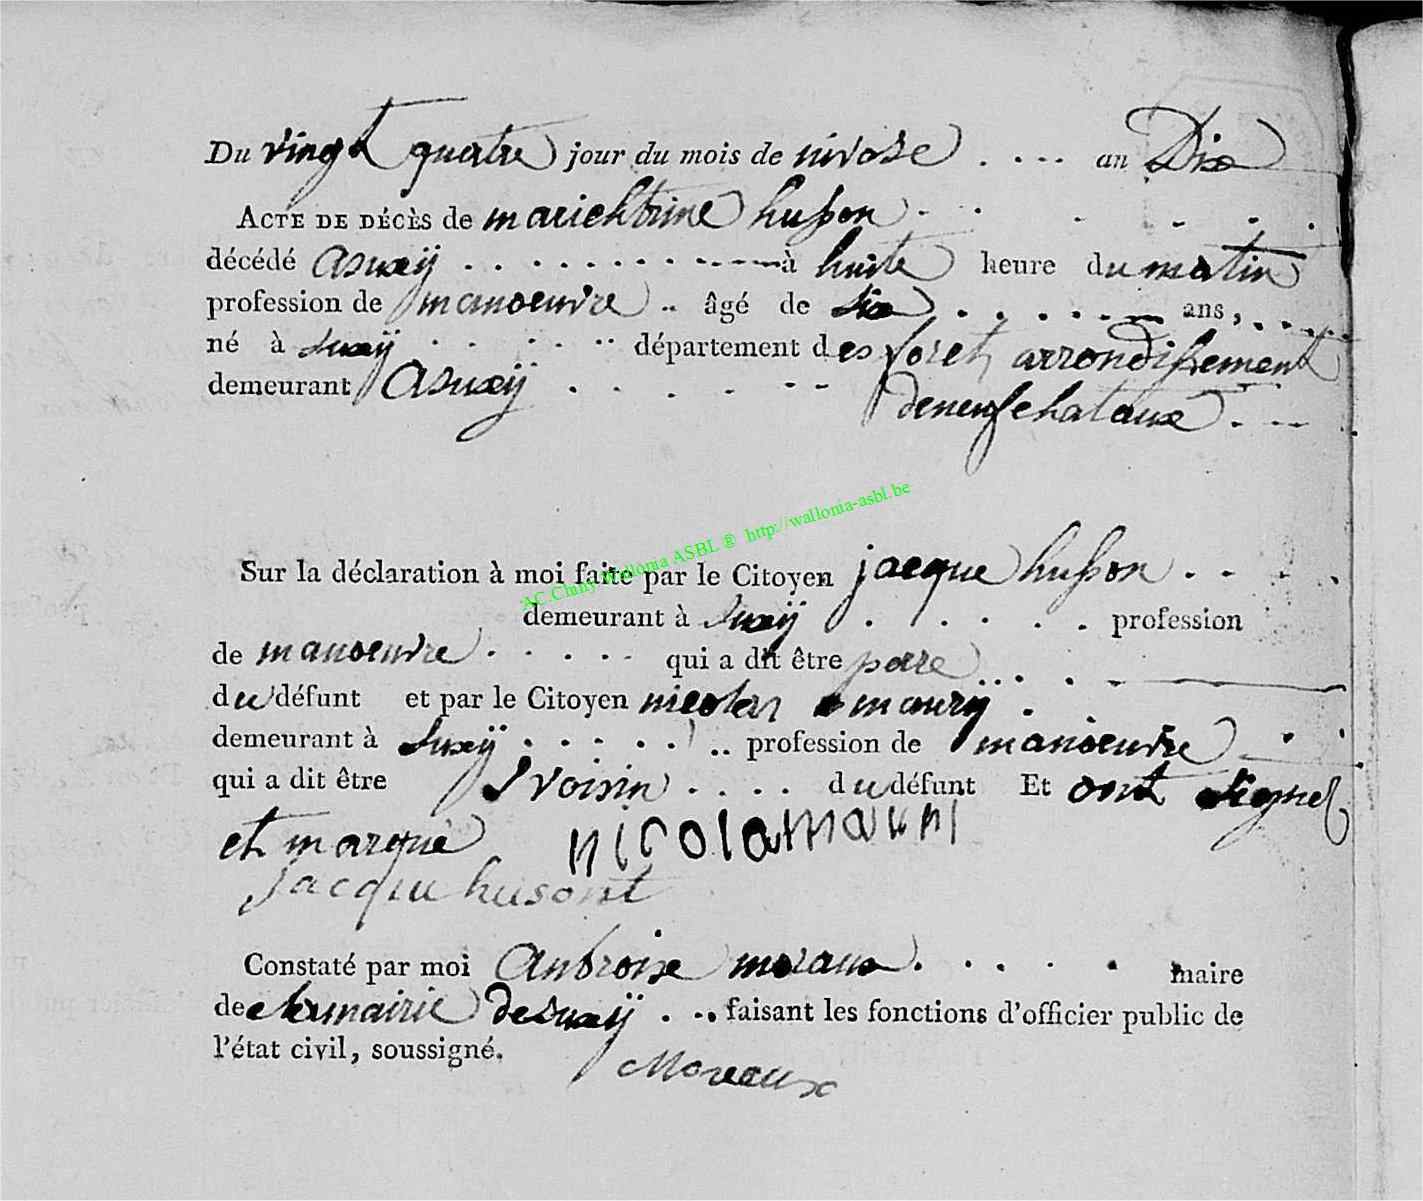 Du vingt quatre jour du mois de nivose . . . . an Dix
ACTE DE DÉCÈS de mariehtrine husson
décédé asuxÿ . . . . . . . . . . à huite heure du matin
profession de manoeuvre .. âgé de six . . . . . . ans, . . . .
né à suxÿ . . . . . . département des foret arrondissement
demeurant Asuxÿ . . . . . . deneufchataux . . .
AC Chiny Wallonia ASBL @ http://wallonia-asbl.be
Sur la déclaration à moi faite par le Citoyen jacque husson . . . .
demeurant à Suxÿ . . . . . . profession
de manoeuvre . . . . . qui a dit être perre . . . .
du défunt et par le Citoyen nicolas maurÿ .
demeurant à Suxÿ . . . . . .. profession de manoeuvre
qui a dit être voisin . . . . du défunt Et ont signez
et marqué nicolamauri
jacque husont
Constaté par moi Anbroise moraux . . . . . maire
de la mairie desuxÿ . .. faisant les fonctions d'officier public de
l'état civil, soussigné.
Moreaux